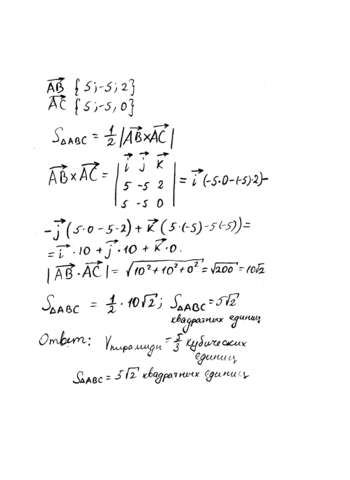 AB {5;-5;2}
AC {5;-5,0}
S△ABC = 1/2 |AB×AC|
AB×AC = | i j k | = i (-5·0-(-5)·2)-
5 -5 2
5 -5 0
-j (5·0-5·2) + k (5·(-5)-5(-5)) =
= i · 10 + j · 10 + k · 0.
|AB·AC| = √10²+10²+0² = √200 = 10√2
S△ABC = 1/2 · 10√2; S△ABC = 5√2
квадратных единиц
Ответ: Vпирамиды = 5/3 кубических
единиц
S△ABC = 5√2 квадратных единиц